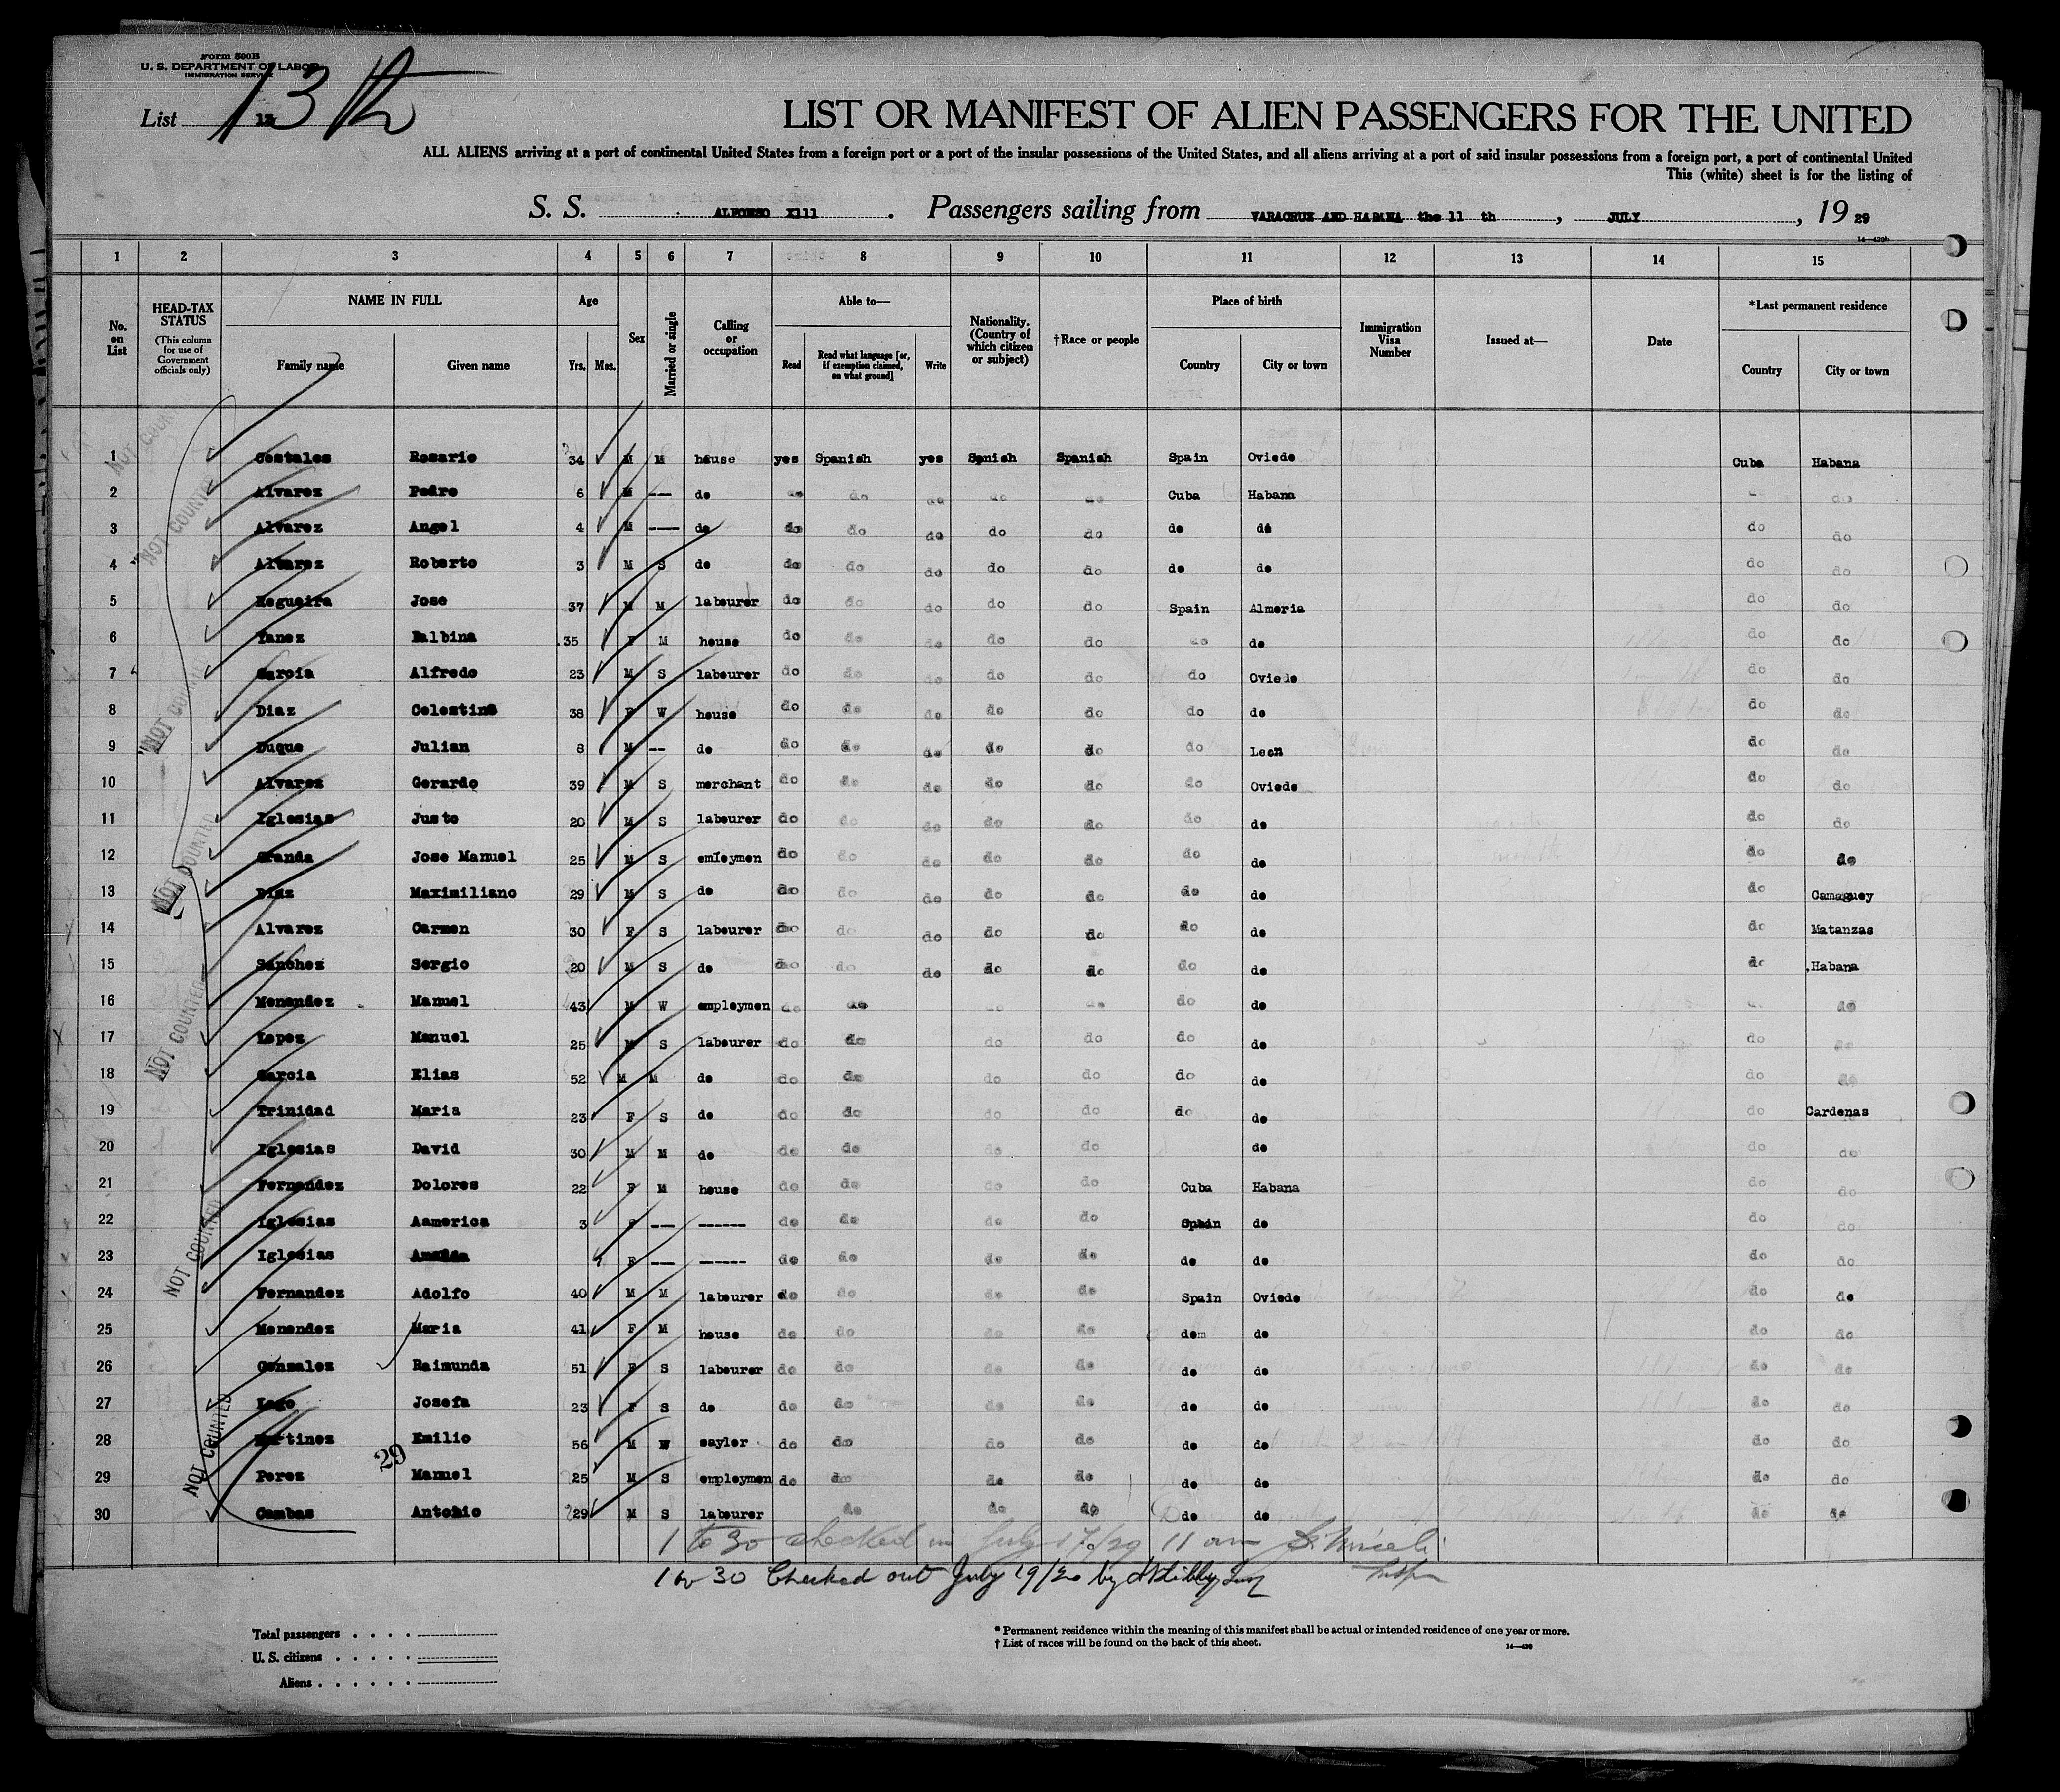 Form 500B
U. S. DEPARTMENT OF LABOR
IMMIGRATION SERVICE
List 13 13th
LIST OR MANIFEST OF ALIEN PASSENGERS FOR THE UNITED
ALL ALIENS arriving at a port of continental United States from a foreign port or a port of the insular possessions of the United States, and all aliens arriving at a port of said insular possessions from a foreign port, a port of continental United
This (white) sheet is for the listing of
S. S. ALFONSO X111 . Passengers sailing from VARACRUZ AND HABANA the 11 th , JULY , 19 29
1 2 3 4 5 6 7 8 9 10 11 12 13 14 15
No. on List HEAD-TAX STATUS (This column for use of Government officials only) NAME IN FULL Family name Given name Age Yrs. Mos. Sex Married or single Calling or occupation Able to— Read Read what language [or, if exemption claimed, on what ground] Write Nationality. (Country of which citizen or subject) †Race or people Place of birth Country City or town Immigration Visa Number Issued at— Date *Last permanent residence Country City or town
1 Costales Rosario 34 M M house yes Spanish yes Spnish Spanish Spain Oviedo Cuba Habana
2 Alvarez Pedro 6 M -- do do do do do do Cuba Habana do
3 Alvarez Angel 4 M --- do do do do do do do do do do
4 Alvarez Roberto 3 M S do do do do do do do do do do
5 Nogueira Jose 37 M M labourer do do do do do Spain Almeria do do
6 Yanez Balbina 35 F M house do do do do do do do do do
7 Garcia Alfredo 23 M S labourer do do do do do do Oviedo do do
8 Diaz Celestina 38 F W house do do do do do do do do do
9 Duque Julian 8 M -- do do do do do do do Leon do do
10 Alvarez Gerardo 39 M S merchant do do do do do do Oviedo do do
11 Iglesias Justo 20 M S labourer do do do do do do do do do
12 Granda Jose Manuel 25 M S emleymen do do do do do do do do do
13 Diaz Maximiliano 29 M S do do do do do do do do do Camaguey
14 Alvarez Carmen 30 F S labourer do do do do do do do do Matanzas
15 Sanchez Sergio 20 M S do do do do do do do do do Habana
16 Menendez Manuel 43 M W employmen do do do do do do do
17 Lopez Manuel 25 M S labourer do do do do do do do do
18 Garcia Elias 52 M M do do do do do do do do do
19 Trinidad Maria 23 F S do do do do do do do do Cardenas
20 Iglesias David 30 M M do do do do do do do do
21 Fernandez Dolores 22 F M house do do do do Cuba Habana do do
22 Iglesias Aamerica 3 F -- ------ do do do do Spain do do do
23 Iglesias F -- ------ do do do do do do do do
24 Fernandez Adolfo 40 M M labourer do do do do Spain Oviedo do do
25 Menendez Maria 41 F M house do do do do dem do do do
26 Gonzalez Raimunda 51 F S labourer do do do do do do do do
27 Lago Josefa 23 F S do do do do do do do do do
28 Martinez Emilio 56 M W sayler do do do do do do do do
29 Perez Manuel 25 M S employmen do do do do do do do do
30 Cambas Antonio 29 M S labourer do do do do do do do
NOT COUNTED
NOT COUNTED
NOT COUNTED
NOT COUNTED
NOT COUNTED
NOT COUNTED
NOT COUNTED
29
1 to 30 checked in July 17/29 11 am
1 to 30 Checked out July 19/20 by
Total passengers . . . .
U. S. citizens . . . . .
Aliens . . . . . .
* Permanent residence within the meaning of this manifest shall be actual or intended residence of one year or more.
† List of races will be found on the back of this sheet.